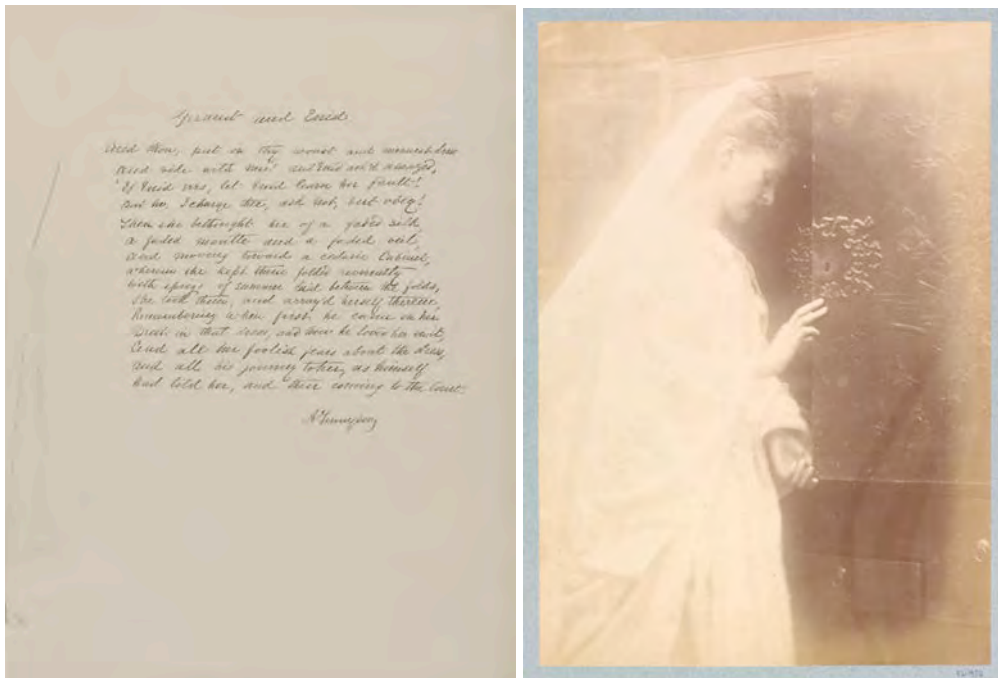 Geraint and Enid
And thou, put on thy worst and meanest dress
And ride with me." And Enid ask'd, amazed,
"If Enid errs, let Enid learn her fault."
But he, "I charge thee, ask not, but obey."
Then she bethought her of a faded silk,
a faded mantle and a faded veil,
And moving toward a cedarn Cabinet,
wherein she kept them folded reverently
With sprigs of summer laid between the folds,
She took them, and array'd herself therein,
Remembering when first he came on her
Drest in that dress, and how he loved her in it,
And all her foolish fears about the dress,
And all his journey to her, as himself
had told her, and their coming to the Court.
A Tennyson